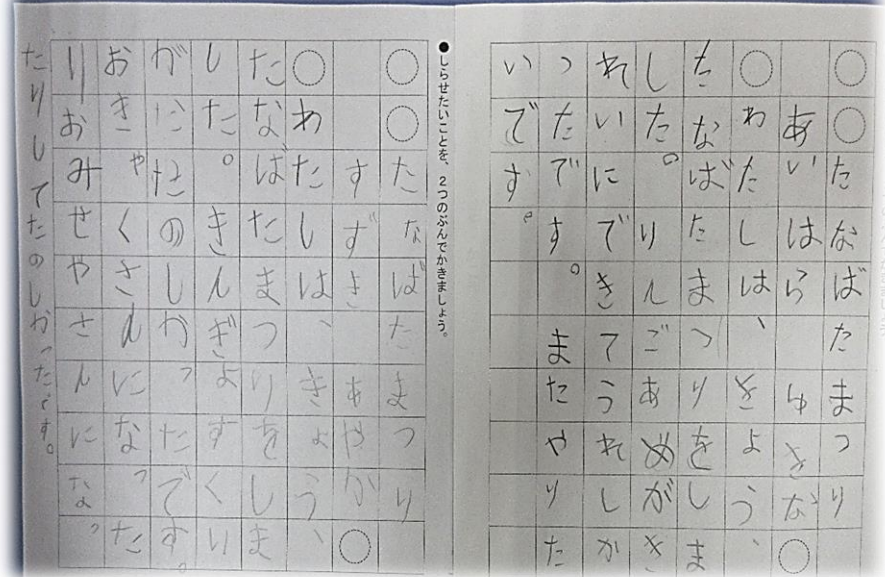 ○○たなばたまつり
あいはら ゆきな○
○わたしは、きょう、
たなばたまつりをしま
した。りんごあめがき
れいにできてうれしか
ったです。またやりた
いです。
●しらせたいことを、2つのぶんでかきましょう。
○○たなばたまつり
すずき あやか○
○わたしは、きょう、
たなばたまつりをしま
した。きんぎょすくい
がにたのしかったです。
おきゃくさんになった
りおみせやさんになっ
たりしてたのしかったです。